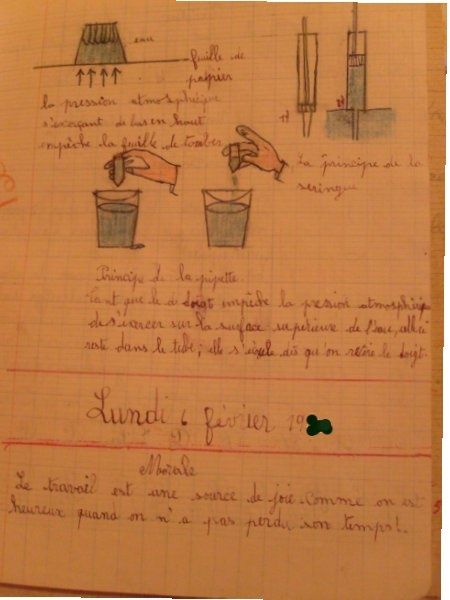 eau
feuille de
papier
la pression atmosphérique
s'exerçant de bas en haut
empêche la feuille de tomber
1)
2)
La principe de la
seringue
Principe de la pipette.
Tant que le doigt empêche la pression atmosphérique
de s'exercer sur la surface supérieure de l'eau, celle-ci
reste dans le tube; elle s'écoule dès qu'on retire le doigt.
Lundi 6 février 19
Morale
Le travail est une source de joie. Comme on est
heureux quand on n'a pas perdu son temps!.